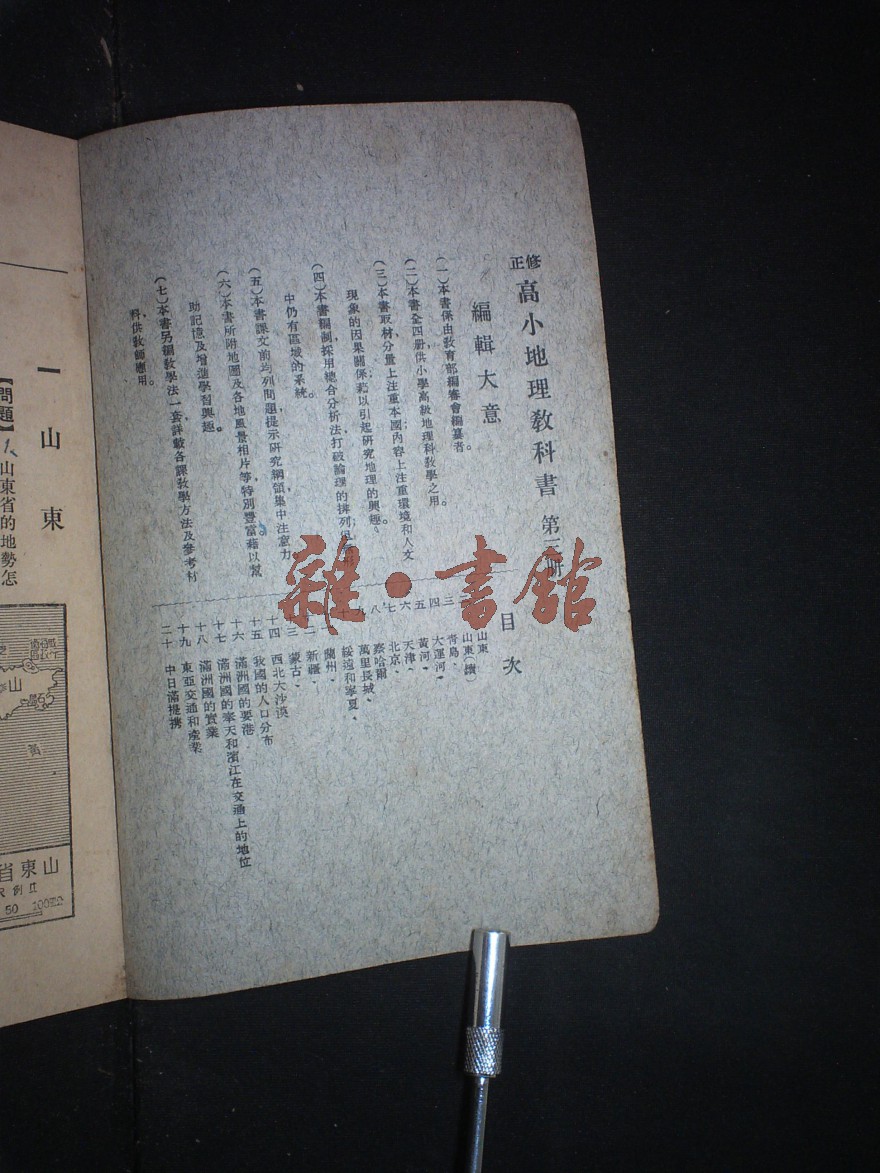 修正 高小地理教科書 第
編輯大意
(一)本書係由教育部編審會編纂者。
(二)本書全四册供小學高級地理科教學之用。
(三)本書取材分量上注重本國內容上注重環境和人文
現象的因果關係藉以引起研究地理的興趣。
(四)本書編制採用總合分析法打破論理的排列但
中仍有區域的系統。
(五)本書課文前均列問題提示研究綱領集中注意力
(六)本書所附地圖及各地風景相片等特別豐富藉以幫
助記憶及增進學習興趣。
(七)本書另編教學法一套詳載各課教學方法及參考材
料,供教師應用。
目次
山東
山東(續)
三 青島、
四 大運河、
五 黃河、
六 天津、
七 北京、
八 察哈爾
萬里長城、
綏遠和寧夏、
蘭州、
新疆、
三 蒙古、
十四 西北大沙漠
十五 我國的人口分布
十六 滿洲國的要港
十七 滿洲國的奉天和濱江在交通上的地位
十八 滿洲國的實業
十九 東亞交通和產業
二十 中日滿提携
雜·書館
一 山東
【問題】
山東省的地勢怎
山
黃
山東省
50 100